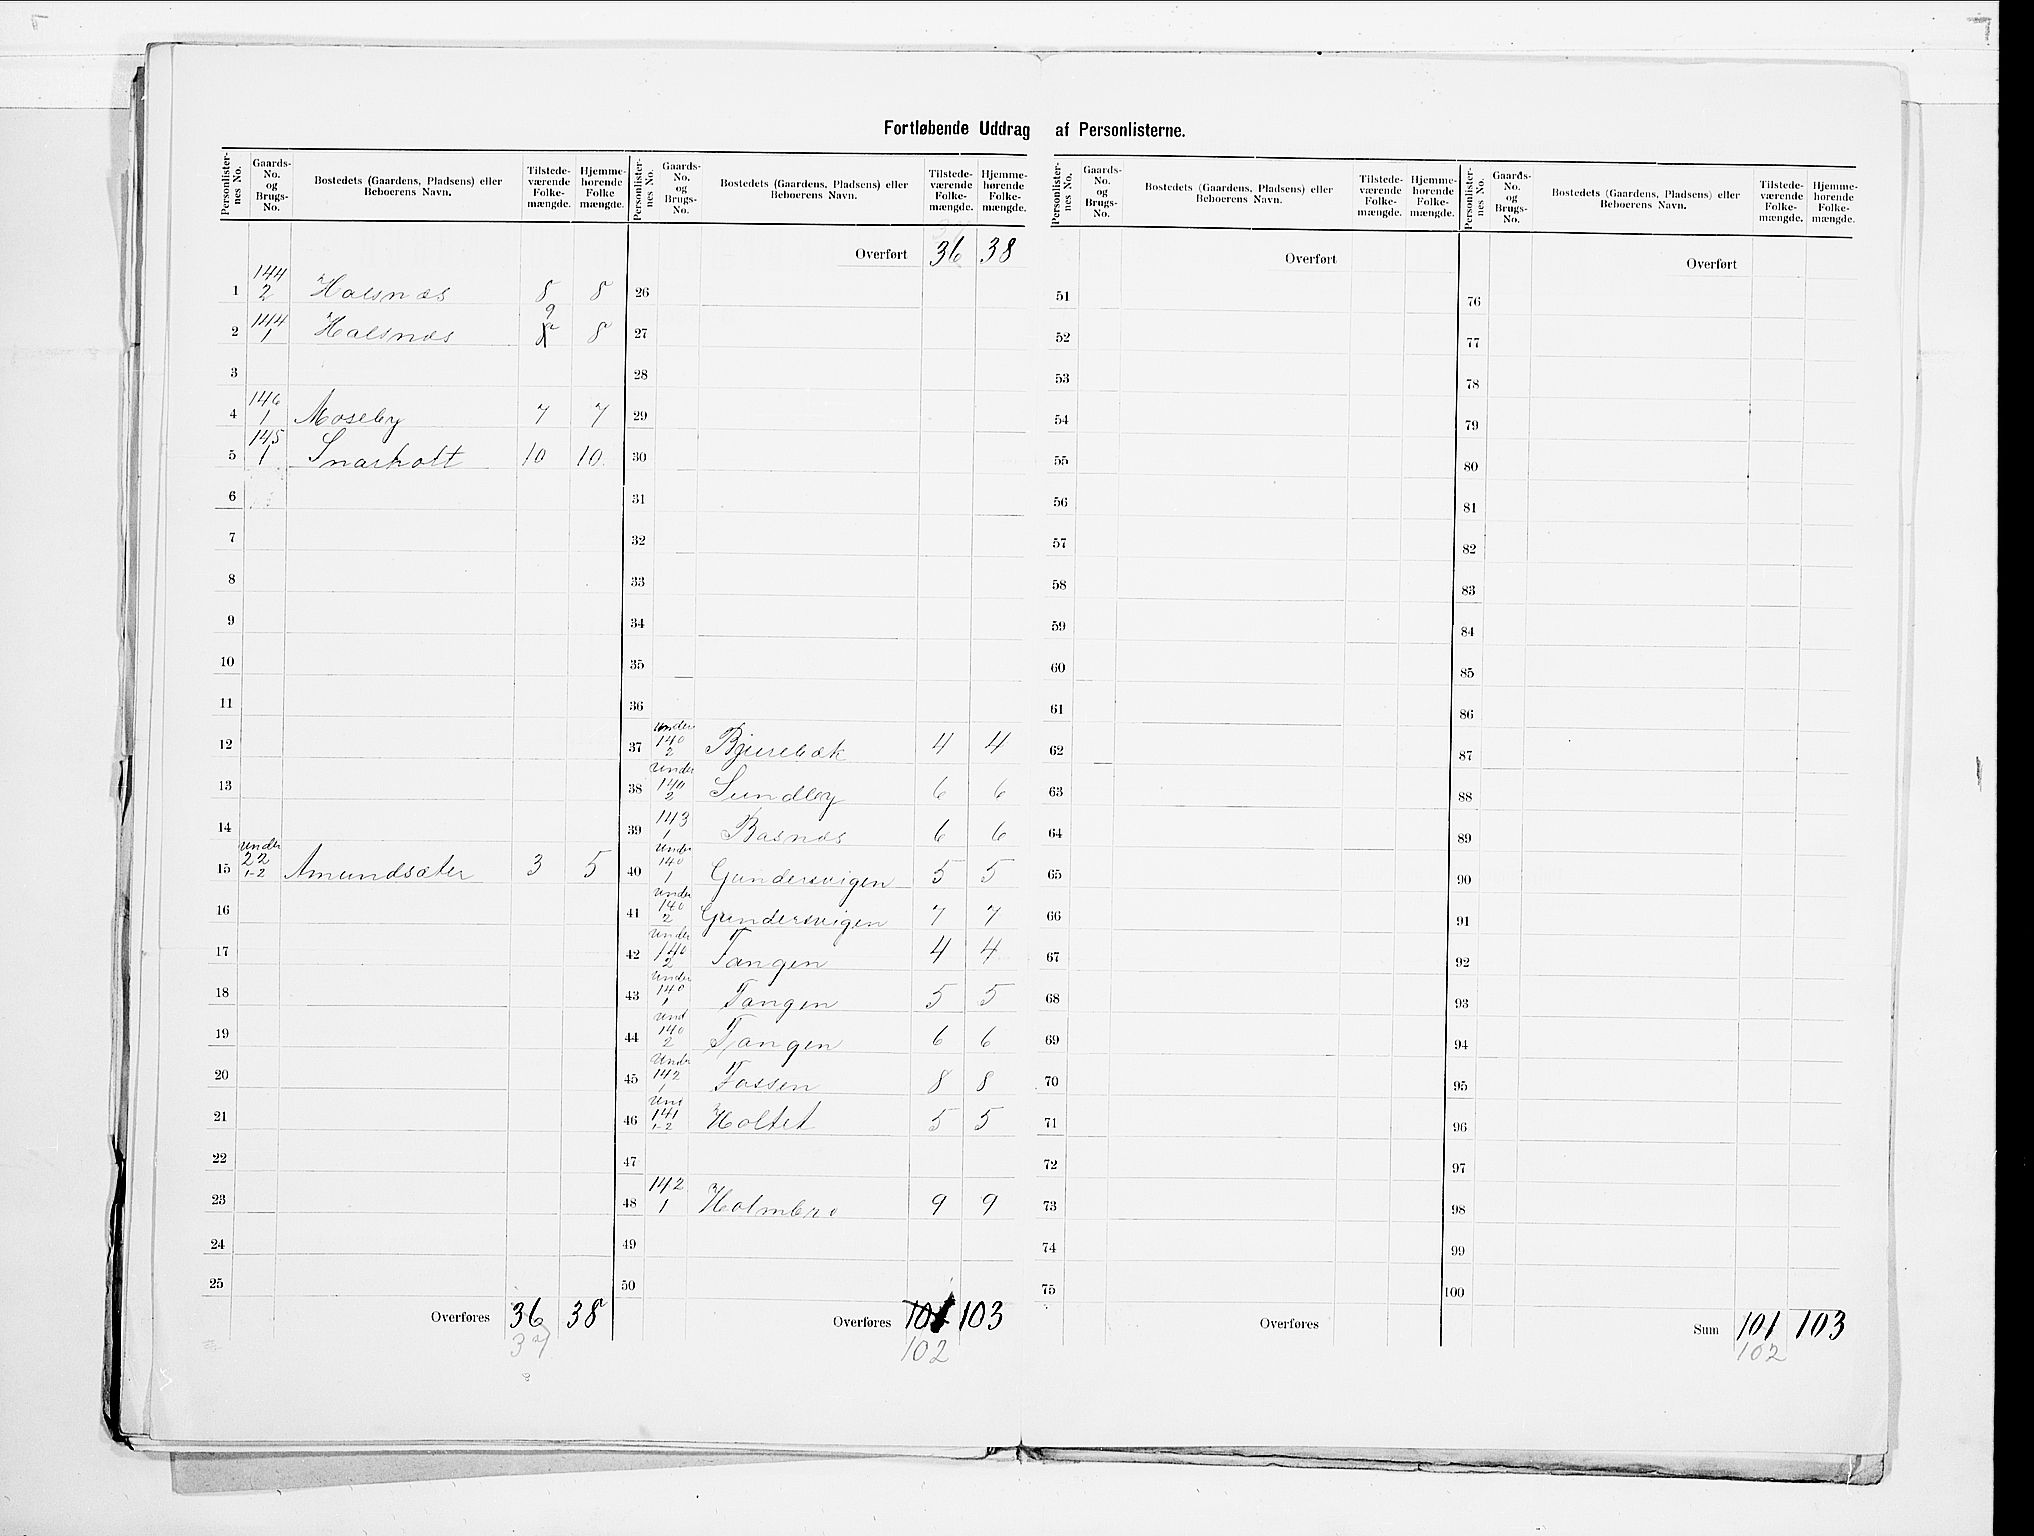 Fortløbende Uddrag af Personlisterne.
Personlisternes No. | Gaards-No. og Brugs-No. | Bostedets (Gaardens, Pladsens) eller Beboerens Navn. | Tilstedeværende Folkemængde. | Hjemmehørende Folkemængde.
1 144/2 Halsnæs 8 8
2 144/1 Halsnæs 9 8
3
4 146/1 Moseby 7 7
5 145/1 Snarholt 10 10
6
7
8
9
10
11
12
13
14
15 under 22/1-2 Amundsæter 3 5
16
17
18
19
20
21
22
23
24
25
Overføres 36 38
37
Personlisternes No. | Gaards-No. og Brugs-No. | Bostedets (Gaardens, Pladsens) eller Beboerens Navn. | Tilstedeværende Folkemængde. | Hjemmehørende Folkemængde.
Overført 36 38
26
27
28
29
30
31
32
33
34
35
36
37 under 140/2 Bjurebæk 4 4
38 under 140/2 Sundby 6 6
39 143/1 Basnæs 6 6
40 under 140/1 Gundersvigen 5 5
41 under 140/2 Gundersvigen 7 7
42 under 140/2 Tangen 4 4
43 under 140/1 Tangen 5 5
44 und 140/2 Tangen 6 6
45 Under 142/1 Fossen 8 8
46 Und 141/1-2 Holtet 5 5
47
48 142/1 Holmbro 9 9
49
50
Overføres 101 103
102
Personlisternes No. | Gaards-No. og Brugs-No. | Bostedets (Gaardens, Pladsens) eller Beboerens Navn. | Tilstedeværende Folkemængde. | Hjemmehørende Folkemængde.
Overført
51
52
53
54
55
56
57
58
59
60
61
62
63
64
65
66
67
68
69
70
71
72
73
74
75
Overføres
Personlisternes No. | Gaards-No. og Brugs-No. | Bostedets (Gaardens, Pladsens) eller Beboerens Navn. | Tilstedeværende Folkemængde. | Hjemmehørende Folkemængde.
Overført
76
77
78
79
80
81
82
83
84
85
86
87
88
89
90
91
92
93
94
95
96
97
98
99
100
Sum 101 103
102